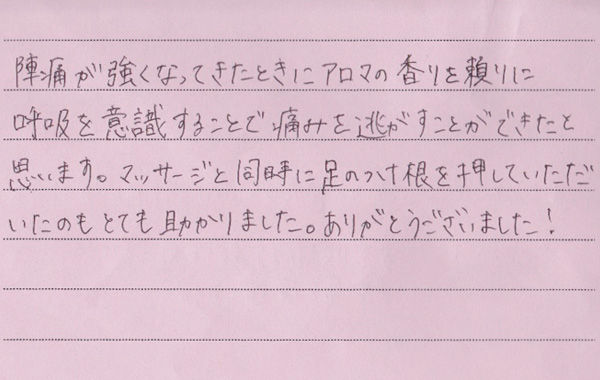 陣痛が強くなってきたときにアロマの香りを頼りに
呼吸を意識することで痛みを逃がすことができたと
思います。マッサージと同時に足のつけ根を押していただ
いたのもとても助かりました。ありがとうございました!